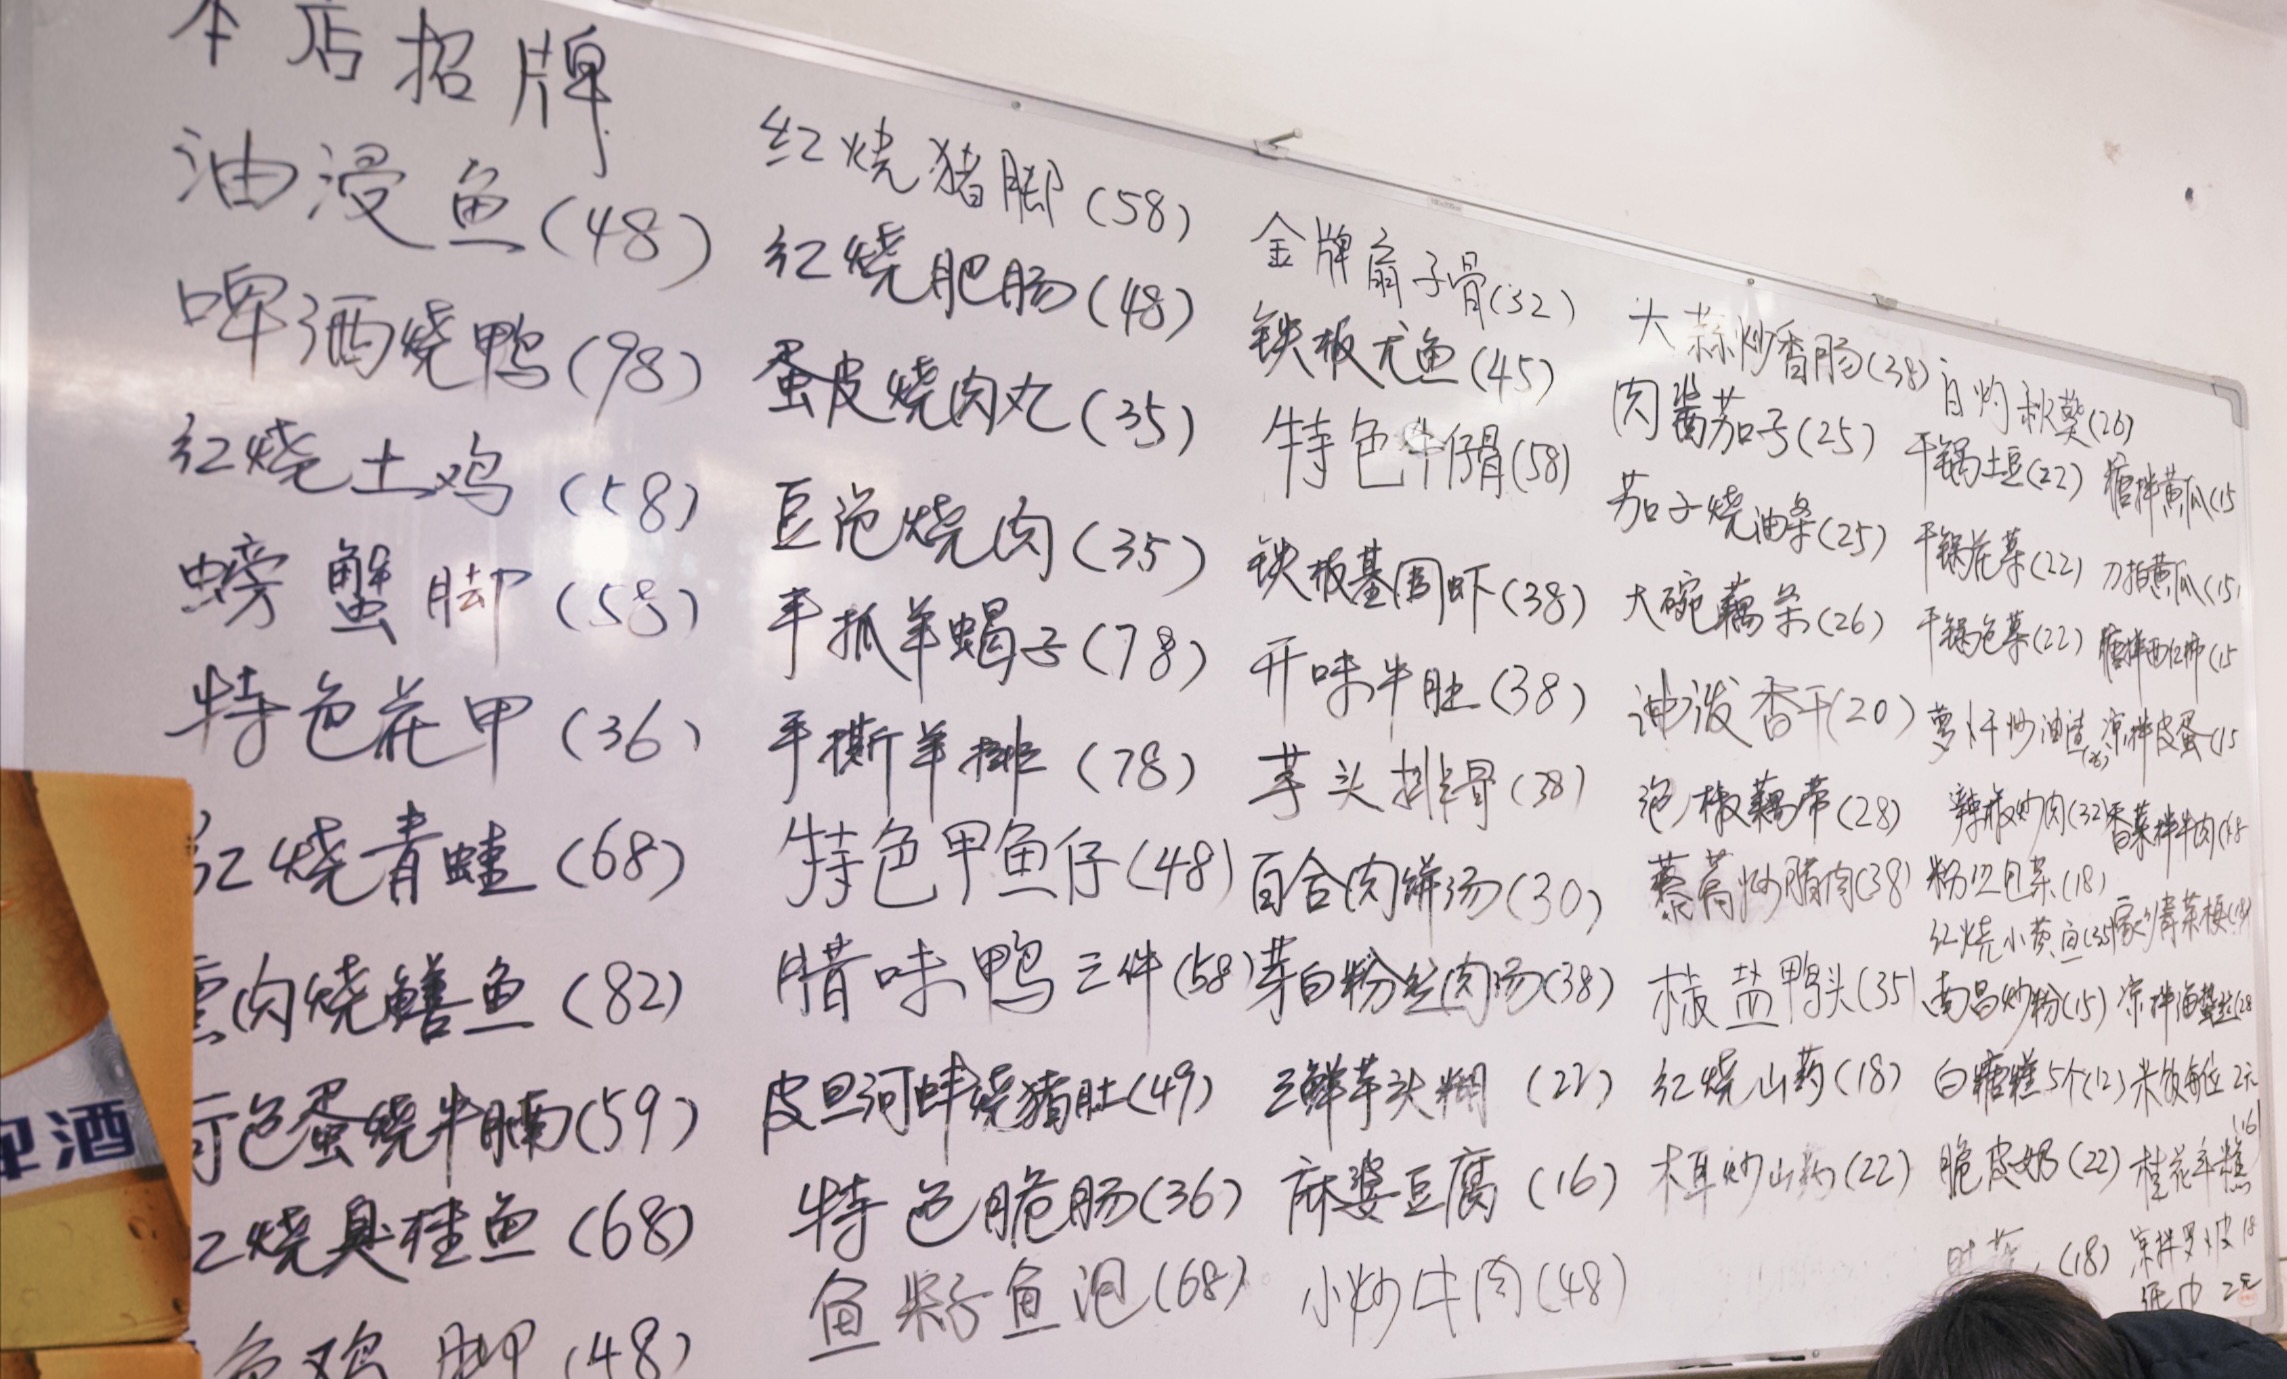 本店招牌
油浸鱼(48)
啤酒烧鸭(98)
红烧土鸡(58)
螃蟹脚(58)
特色花甲(36)
红烧青蛙(68)
肉烧鳝鱼(82)
色蛋烧牛腩(59)
红烧臭桂鱼(68)
色鸡脚(48)
啤酒
红烧猪脚(58)
红烧肥肠(48)
蛋皮烧肉丸(35)
豆泡烧肉(35)
手抓羊蝎子(78)
手撕羊排(78)
特色甲鱼仔(48)
腊味鸭三件(58)
皮旦河蚌烧猪肚(49)
特色脆肠(36)
鱼籽鱼泡(68)
金牌扇子骨(32)
铁板尤鱼(45)
特色牛仔骨(58)
铁板基围虾(38)
开味牛肚(38)
芋头排骨(38)
百合肉饼汤(30)
芽白粉丝肉汤(38)
三鲜芋头糊(22)
麻婆豆腐(16)
小炒牛肉(48)
大蒜炒香肠(38)
肉酱茄子(25)
茄子烧油条(25)
大碗藕条(26)
油泼香干(20)
泡椒藕带(28)
藜蒿炒腊肉(38)
椒盐鸭头(35)
红烧山药(18)
木耳炒山药(22)
白灼秋葵(26)
干锅土豆(22)
干锅花菜(22)
干锅包菜(22)
萝卜干炒油渣(26)
辣椒炒肉(32)
粉皮包菜(18)
红烧小黄鱼(35)
南昌炒粉(15)
白糖糕5个(12)
脆皮奶(22)
时蔬(18)
糖拌黄瓜(15
刀拍黄瓜(15)
糖拌西红柿(15
凉拌皮蛋(15
香菜拌牛肉(48
家炒青菜梗(18)
凉拌海蜇丝(28
米饭每位2元
桂花年糕(16)
凉拌萝卜皮18
纸巾2元